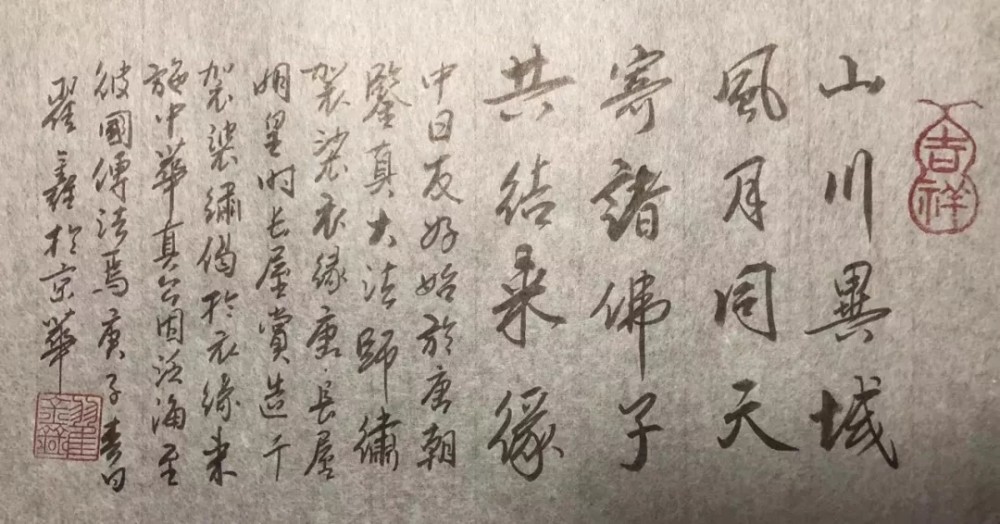 吉祥
山川異域
風月同天
寄諸佛子
共結来緣
中日友好始於唐朝
鑒真大法師繡
袈裟衣缘唐長屋
明皇时长屋賞造千
袈裟繡偈於衣缘来
施中華真公因泛海至
彼國傳法焉庚子春日
翟鑫於京華